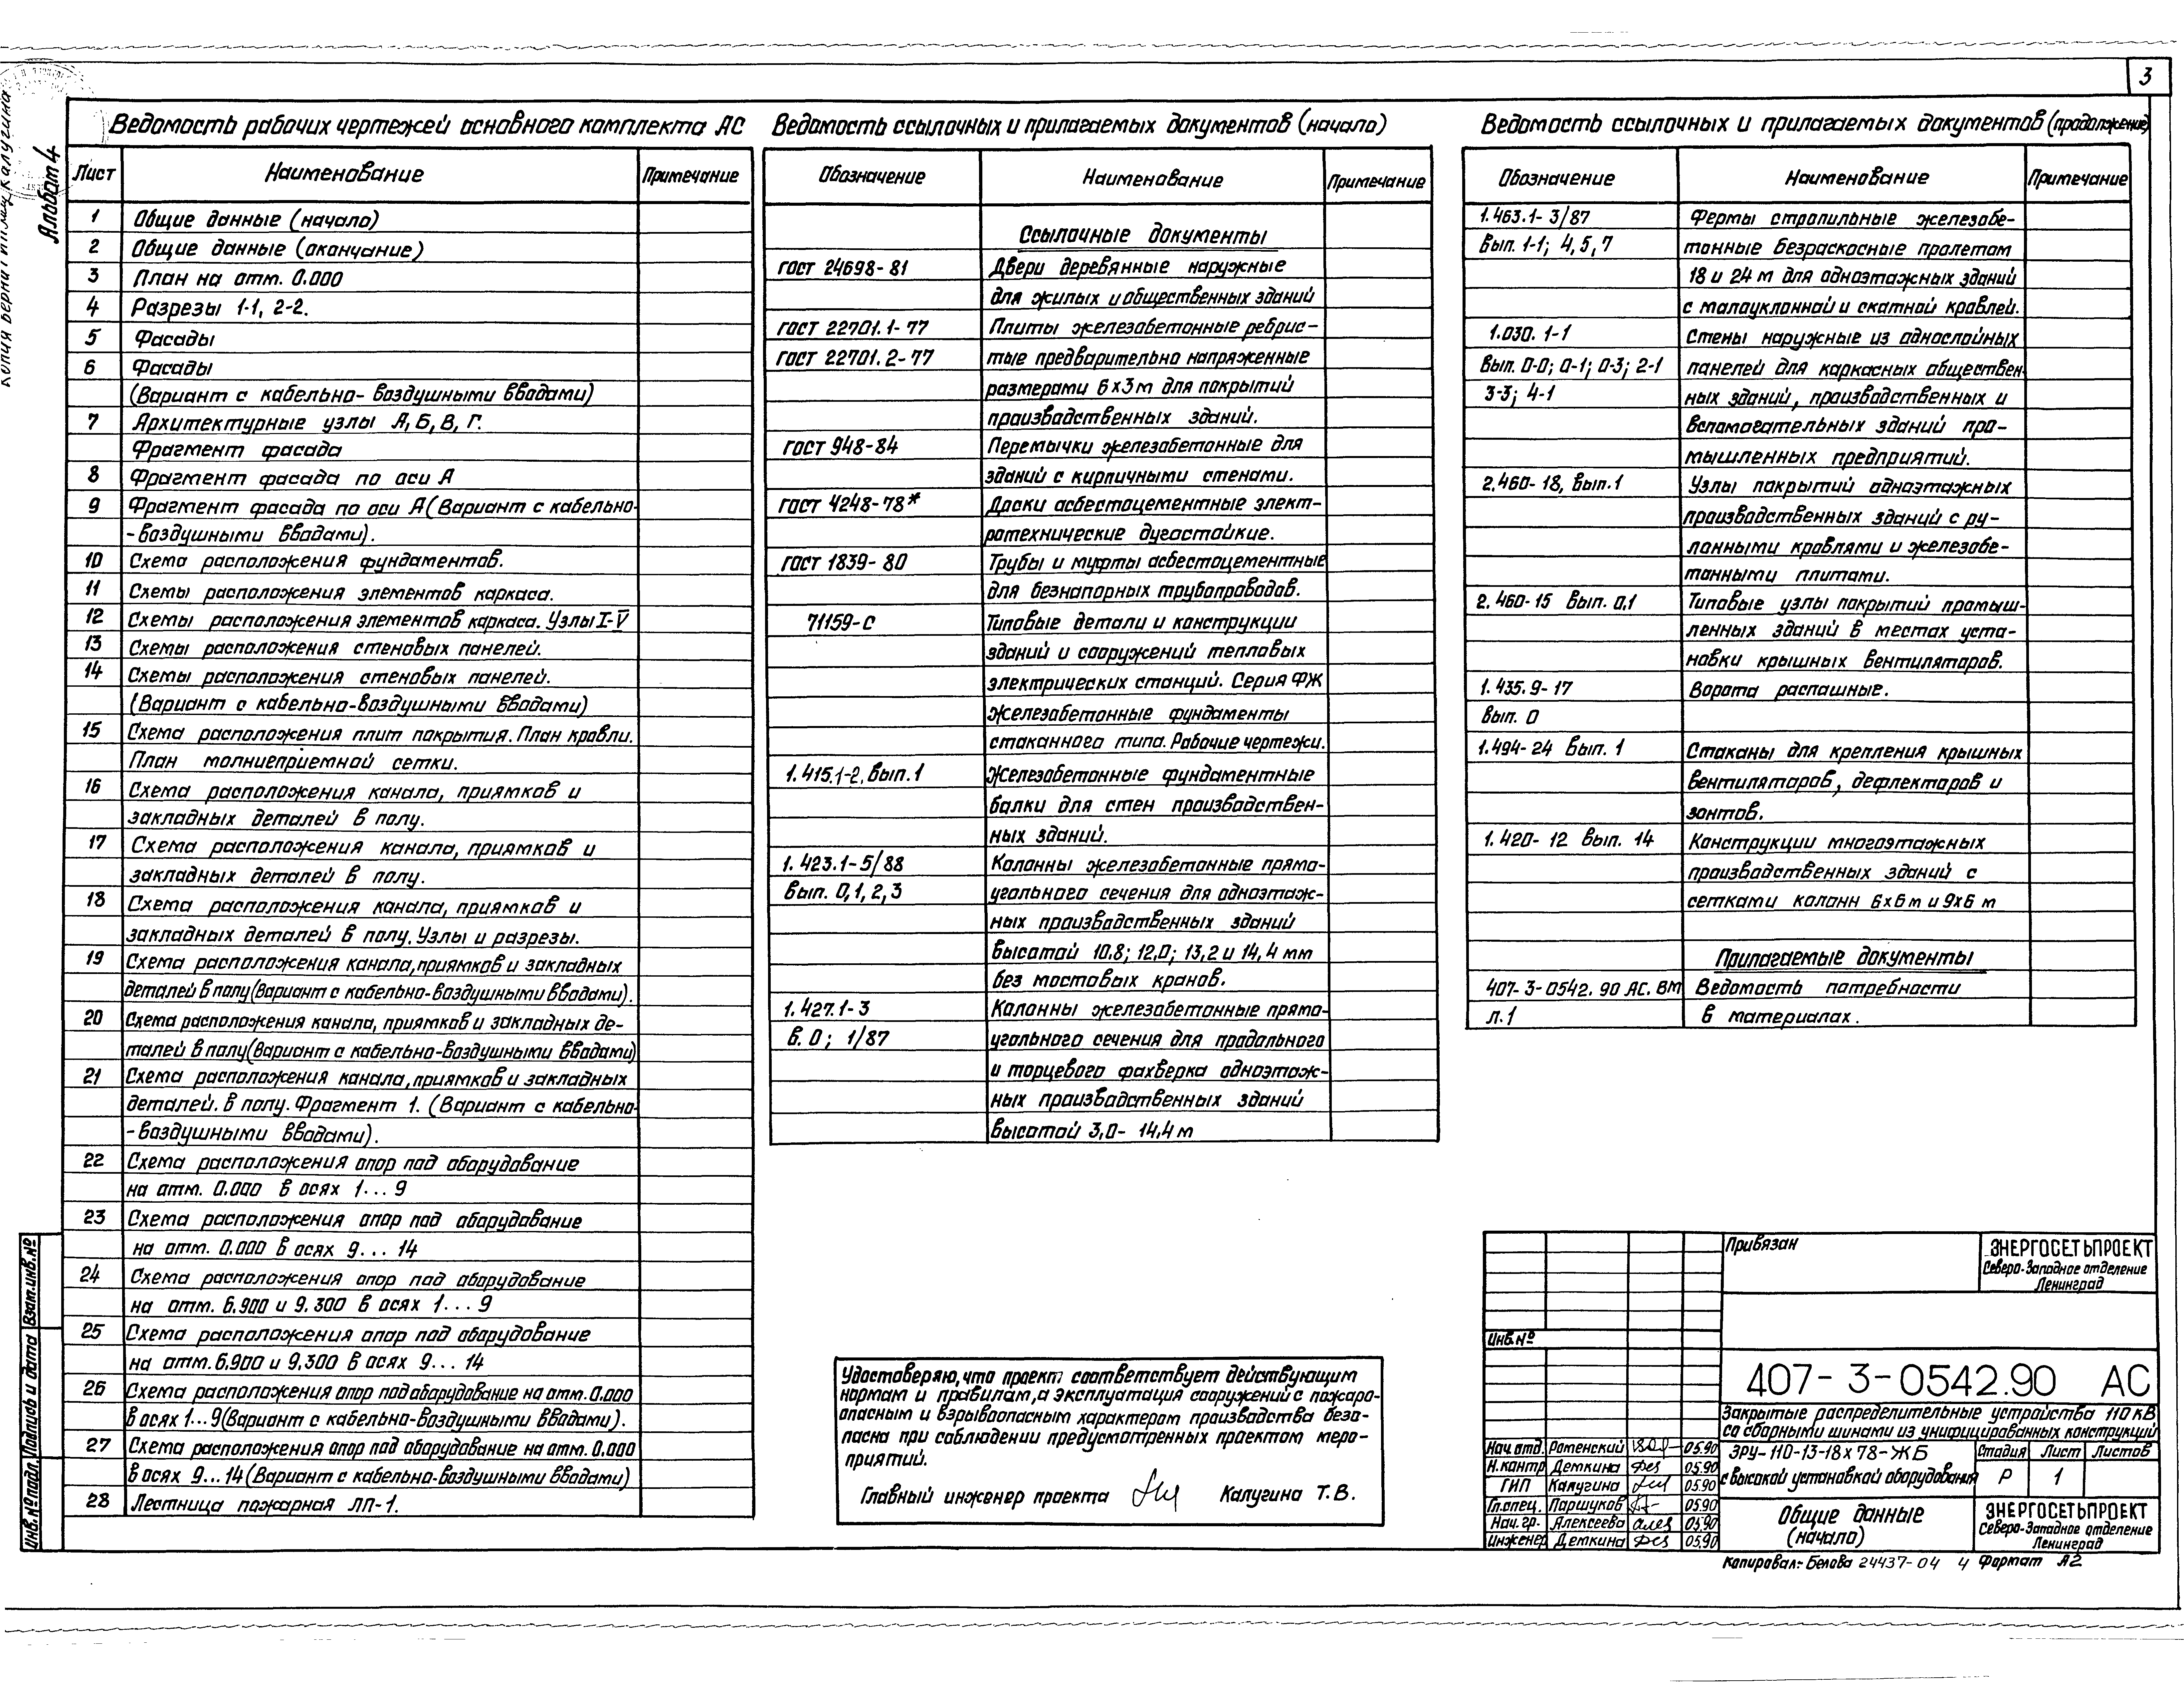 3
Альбом 4
Ведомость рабочих чертежей основного комплекта АС
Лист Наименование Примечание
1 Общие данные (начало)
2 Общие данные (окончание)
3 План на отм. 0.000
4 Разрезы 1-1, 2-2.
5 Фасады
6 Фасады
(Вариант с кабельно-воздушными вводами)
7 Архитектурные узлы А, Б, В, Г.
Фрагмент фасада
8 Фрагмент фасада по оси А
9 Фрагмент фасада по оси А (Вариант с кабельно-
-воздушными вводами).
10 Схема расположения фундаментов.
11 Схемы расположения элементов каркаса.
12 Схемы расположения элементов каркаса. Узлы I-V
13 Схемы расположения стеновых панелей.
14 Схемы расположения стеновых панелей.
(Вариант с кабельно-воздушными вводами)
15 Схема расположения плит покрытия. План кровли.
План молниеприемной сетки.
16 Схема расположения канала, приямков и
закладных деталей в полу.
17 Схема расположения канала, приямков и
закладных деталей в полу.
18 Схема расположения канала, приямков и
закладных деталей в полу. Узлы и разрезы.
19 Схема расположения канала, приямков и закладных
деталей в полу (Вариант с кабельно-воздушными вводами).
20 Схема расположения канала, приямков и закладных де-
талей в полу (Вариант с кабельно-воздушными вводами)
21 Схема расположения канала, приямков и закладных
деталей. в полу. Фрагмент 1. (Вариант с кабельно-
-воздушными вводами).
22 Схема расположения опор под оборудование
на отм. 0.000 в осях 1...9
23 Схема расположения опор под оборудование
на отм. 0.000 в осях 9...14
24 Схема расположения опор под оборудование
на отм. 6.900 и 9.300 в осях 1...9
25 Схема расположения опор под оборудование
на отм. 6.900 и 9,300 в осях 9...14
26 Схема расположения опор под оборудование на отм. 0.000
в осях 1...9 (Вариант с кабельно-воздушными вводами).
27 Схема расположения опор под оборудование на отм. 0.000
в осях 9...14 (Вариант с кабельно-воздушными вводами)
28 Лестница пожарная ЛП-1.
Ведомость ссылочных и прилагаемых документов (начало)
Обозначение Наименование Примечание
Ссылочные документы
ГОСТ 24698-81 Двери деревянные наружные
для жилых и общественных зданий
ГОСТ 22701.1-77 Плиты железобетонные ребрис-
ГОСТ 22701.2-77 тые предварительно напряженные
размерами 6х3м для покрытий
производственных зданий.
ГОСТ 948-84 Перемычки железобетонные для
зданий с кирпичными стенами.
ГОСТ 4248-78* Доски асбестоцементные элект-
ротехнические дугостойкие.
ГОСТ 1839-80 Трубы и муфты асбестоцементные
для безнапорных трубопроводов.
71159-С Типовые детали и конструкции
зданий и сооружений тепловых
электрических станций. Серия ФЖ
Железобетонные фундаменты
стаканного типа. Рабочие чертежи.
1.415.1-2. Вып. 1 Железобетонные фундаментные
балки для стен производствен-
ных зданий.
1.423.1-5/88 Колонны железобетонные прямо-
Вып. 0,1,2,3 угольного сечения для одноэтаж-
ных производственных зданий
высотой 10.8; 12,0; 13,2 и 14,4 мм
без мостовых кранов.
1.427.1-3 Колонны железобетонные прямо-
в. 0; 1/87 угольного сечения для продольного
и торцевого фахверка одноэтаж-
ных производственных зданий
высотой 3,0-14,4 м
Ведомость ссылочных и прилагаемых документов (продолжение)
Обозначение Наименование Примечание
1.463.1-3/87 Фермы стропильные железобе-
Вып. 1-1; 4,5,7 тонные безраскосные пролетом
18 и 24 м для одноэтажных зданий
с малоуклонной и скатной кровлей.
1.030.1-1 Стены наружные из однослойных
Вып. 0-0; 0-1; 0-3; 2-1 панелей для каркасных обществен
3-3; 4-1 ных зданий, производственных и
вспомогательных зданий про-
мышленных предприятий.
2.460-18, вып. 1 Узлы покрытий одноэтажных
производственных зданий с ру-
лонными кровлями и железобе-
тонными плитами.
2.460-15 Вып. 0,1 Типовые узлы покрытий промыш-
ленных зданий в местах уста-
новки крышных вентиляторов.
1.435.9-17 Ворота распашные.
Вып. 0
1.494-24 Вып. 1 Стаканы для крепления крышных
вентиляторов, дефлекторов и
зонтов.
1.420-12 Вып. 14 Конструкции многоэтажных
производственных зданий с
сетками колонн 6х6м и 9х6 м
Прилагаемые документы
407-3-0542.90 АС. ВМ Ведомость потребности
л.1 в материалах.
Удостоверяю, что проект соответствует действующим
нормам и правилам, а эксплуатация сооружений с пожаро-
опасным и взрывоопасным характером производства безо-
пасна при соблюдении предусмотренных проектом меро-
приятий.
Главный инженер проекта Калугина Т.В.
Привязан
ЭНЕРГОСЕТЬПРОЕКТ
Северо-Западное отделение
Ленинград
Инв.№
407-3-0542.90 АС
Закрытые распределительные устройства 110 кВ
со сборными шинами из унифицированных конструкций
Нач.отд. Роменский 05.90
Н.контр Демкина 05.90
ГИП Калугина 05.90
Гл.спец. Паршуков 05.90
Нач.гр. Алексеева 05.90
Инженер Демкина 05.90
ЗРУ-110-13-18х78-ЖБ
с высокой установкой оборудования
Стадия Лист Листов
Р 1
Общие данные
(начало)
ЭНЕРГОСЕТЬПРОЕКТ
Северо-Западное отделение
Ленинград
Копировал: Белова 24437-04 4 Формат А2
Инв.№ подл. Подпись и дата Взам.инв.№